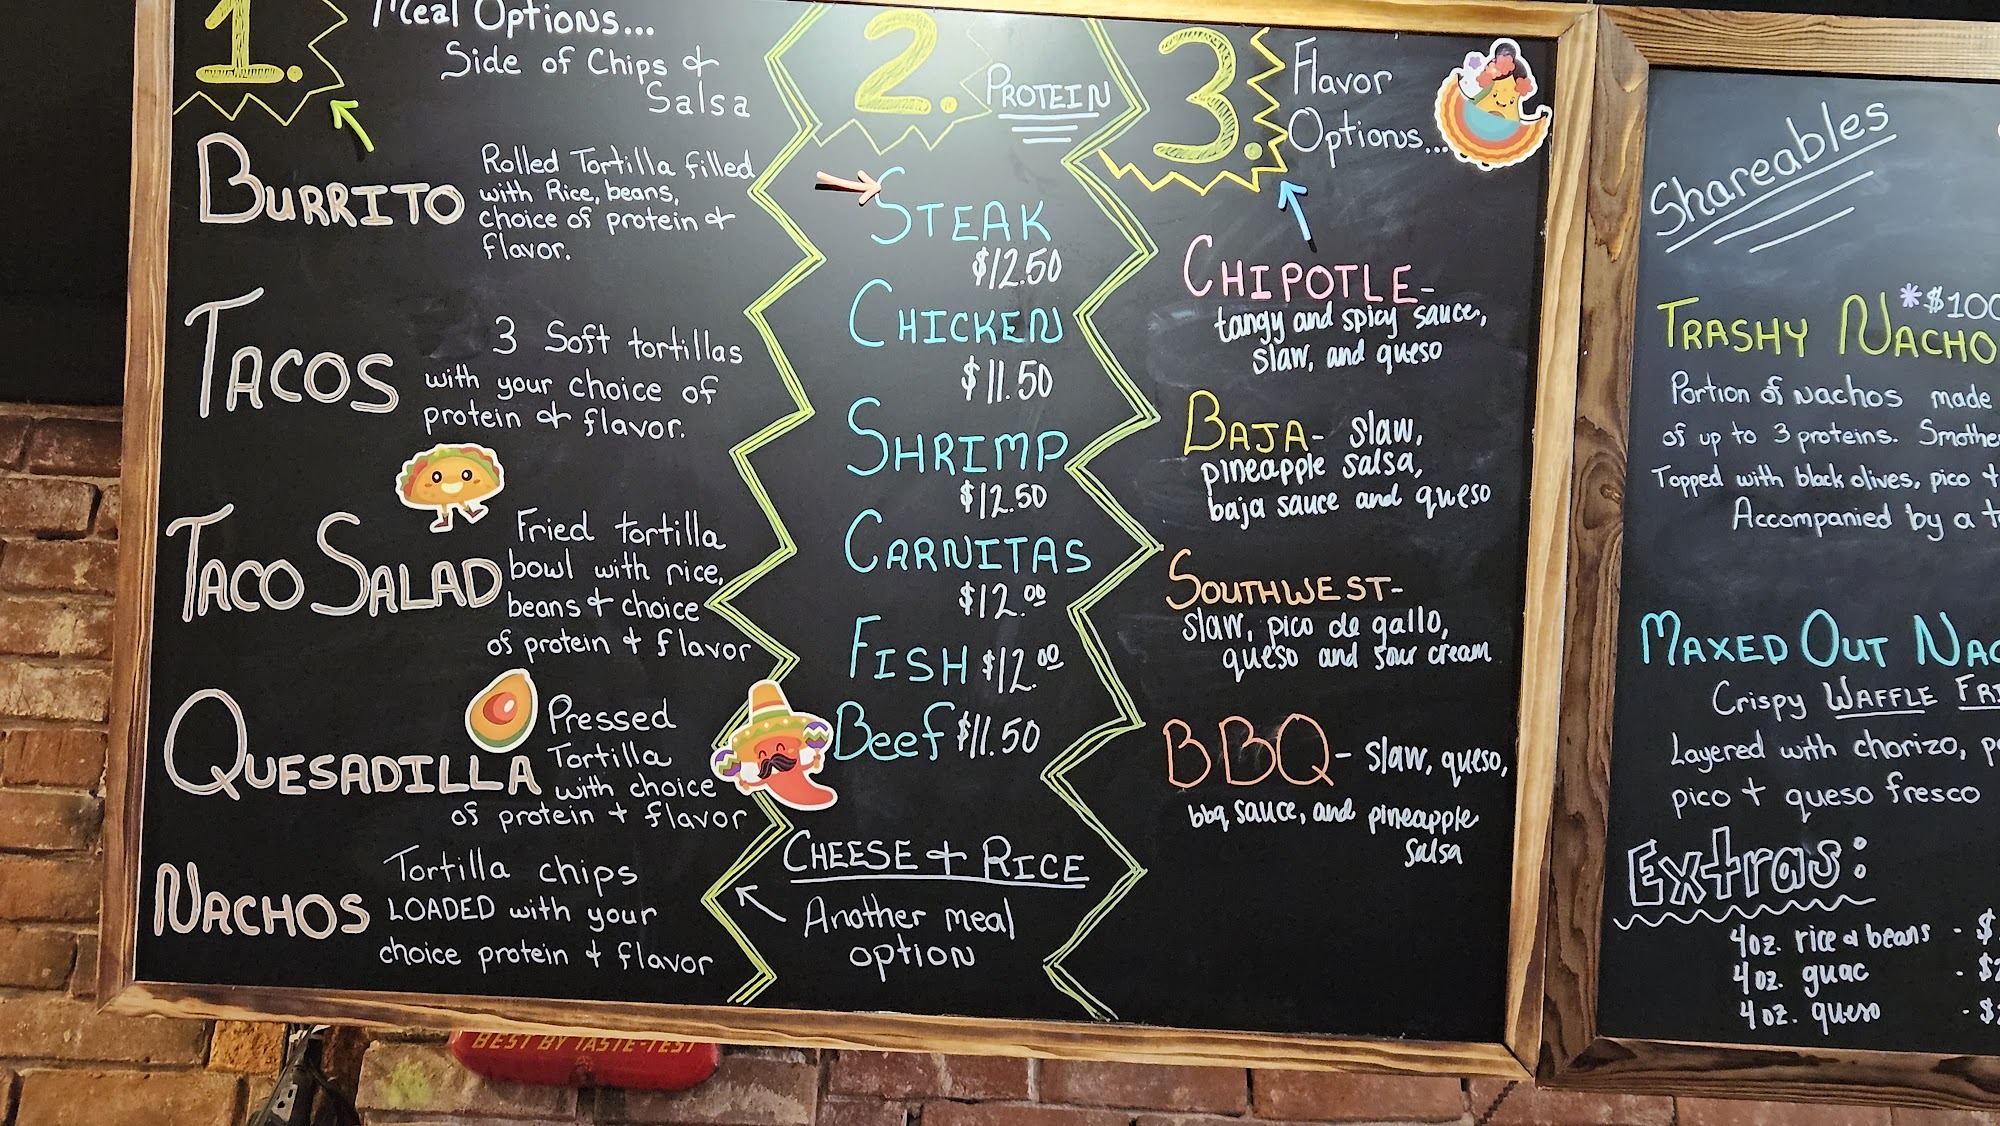 1.
Meal Options...
Side of Chips &
Salsa
BURRITO
Rolled Tortilla filled
with Rice, beans,
choice of protein &
flavor.
TACOS
3 Soft tortillas
with your choice of
protein & flavor.
TACO SALAD
Fried tortilla
bowl with rice,
beans & choice
of protein & flavor
QUESADILLA
Pressed
Tortilla
with choice
of protein + flavor
NACHOS
Tortilla chips
LOADED with your
choice protein + flavor
2.
PROTEIN
STEAK
$12.50
CHICKEN
$11.50
SHRIMP
$12.50
CARNITAS
$12.00
FISH $12.00
Beef $11.50
CHEESE & RICE
Another meal
option
3.
Flavor
Options...
CHIPOTLE-
tangy and spicy sauce,
slaw, and queso
BAJA- slaw,
pineapple salsa,
baja sauce and queso
SOUTHWEST-
slaw, pico de gallo,
queso and sour cream
BBQ- slaw, queso,
bbq sauce, and pineapple
salsa
Shareables
*$100
TRASHY NACHO
Portion of nachos made
of up to 3 proteins. Smothe
Topped with black olives, pico +
Accompanied by a
MAXED OUT NAC
Crispy WAFFLE FRI
Layered with chorizo,
pico + queso fresco
Extras:
4oz. rice & beans - $
4oz. guac - $2
4oz. queso - $
BEST BY TASTE-TEST